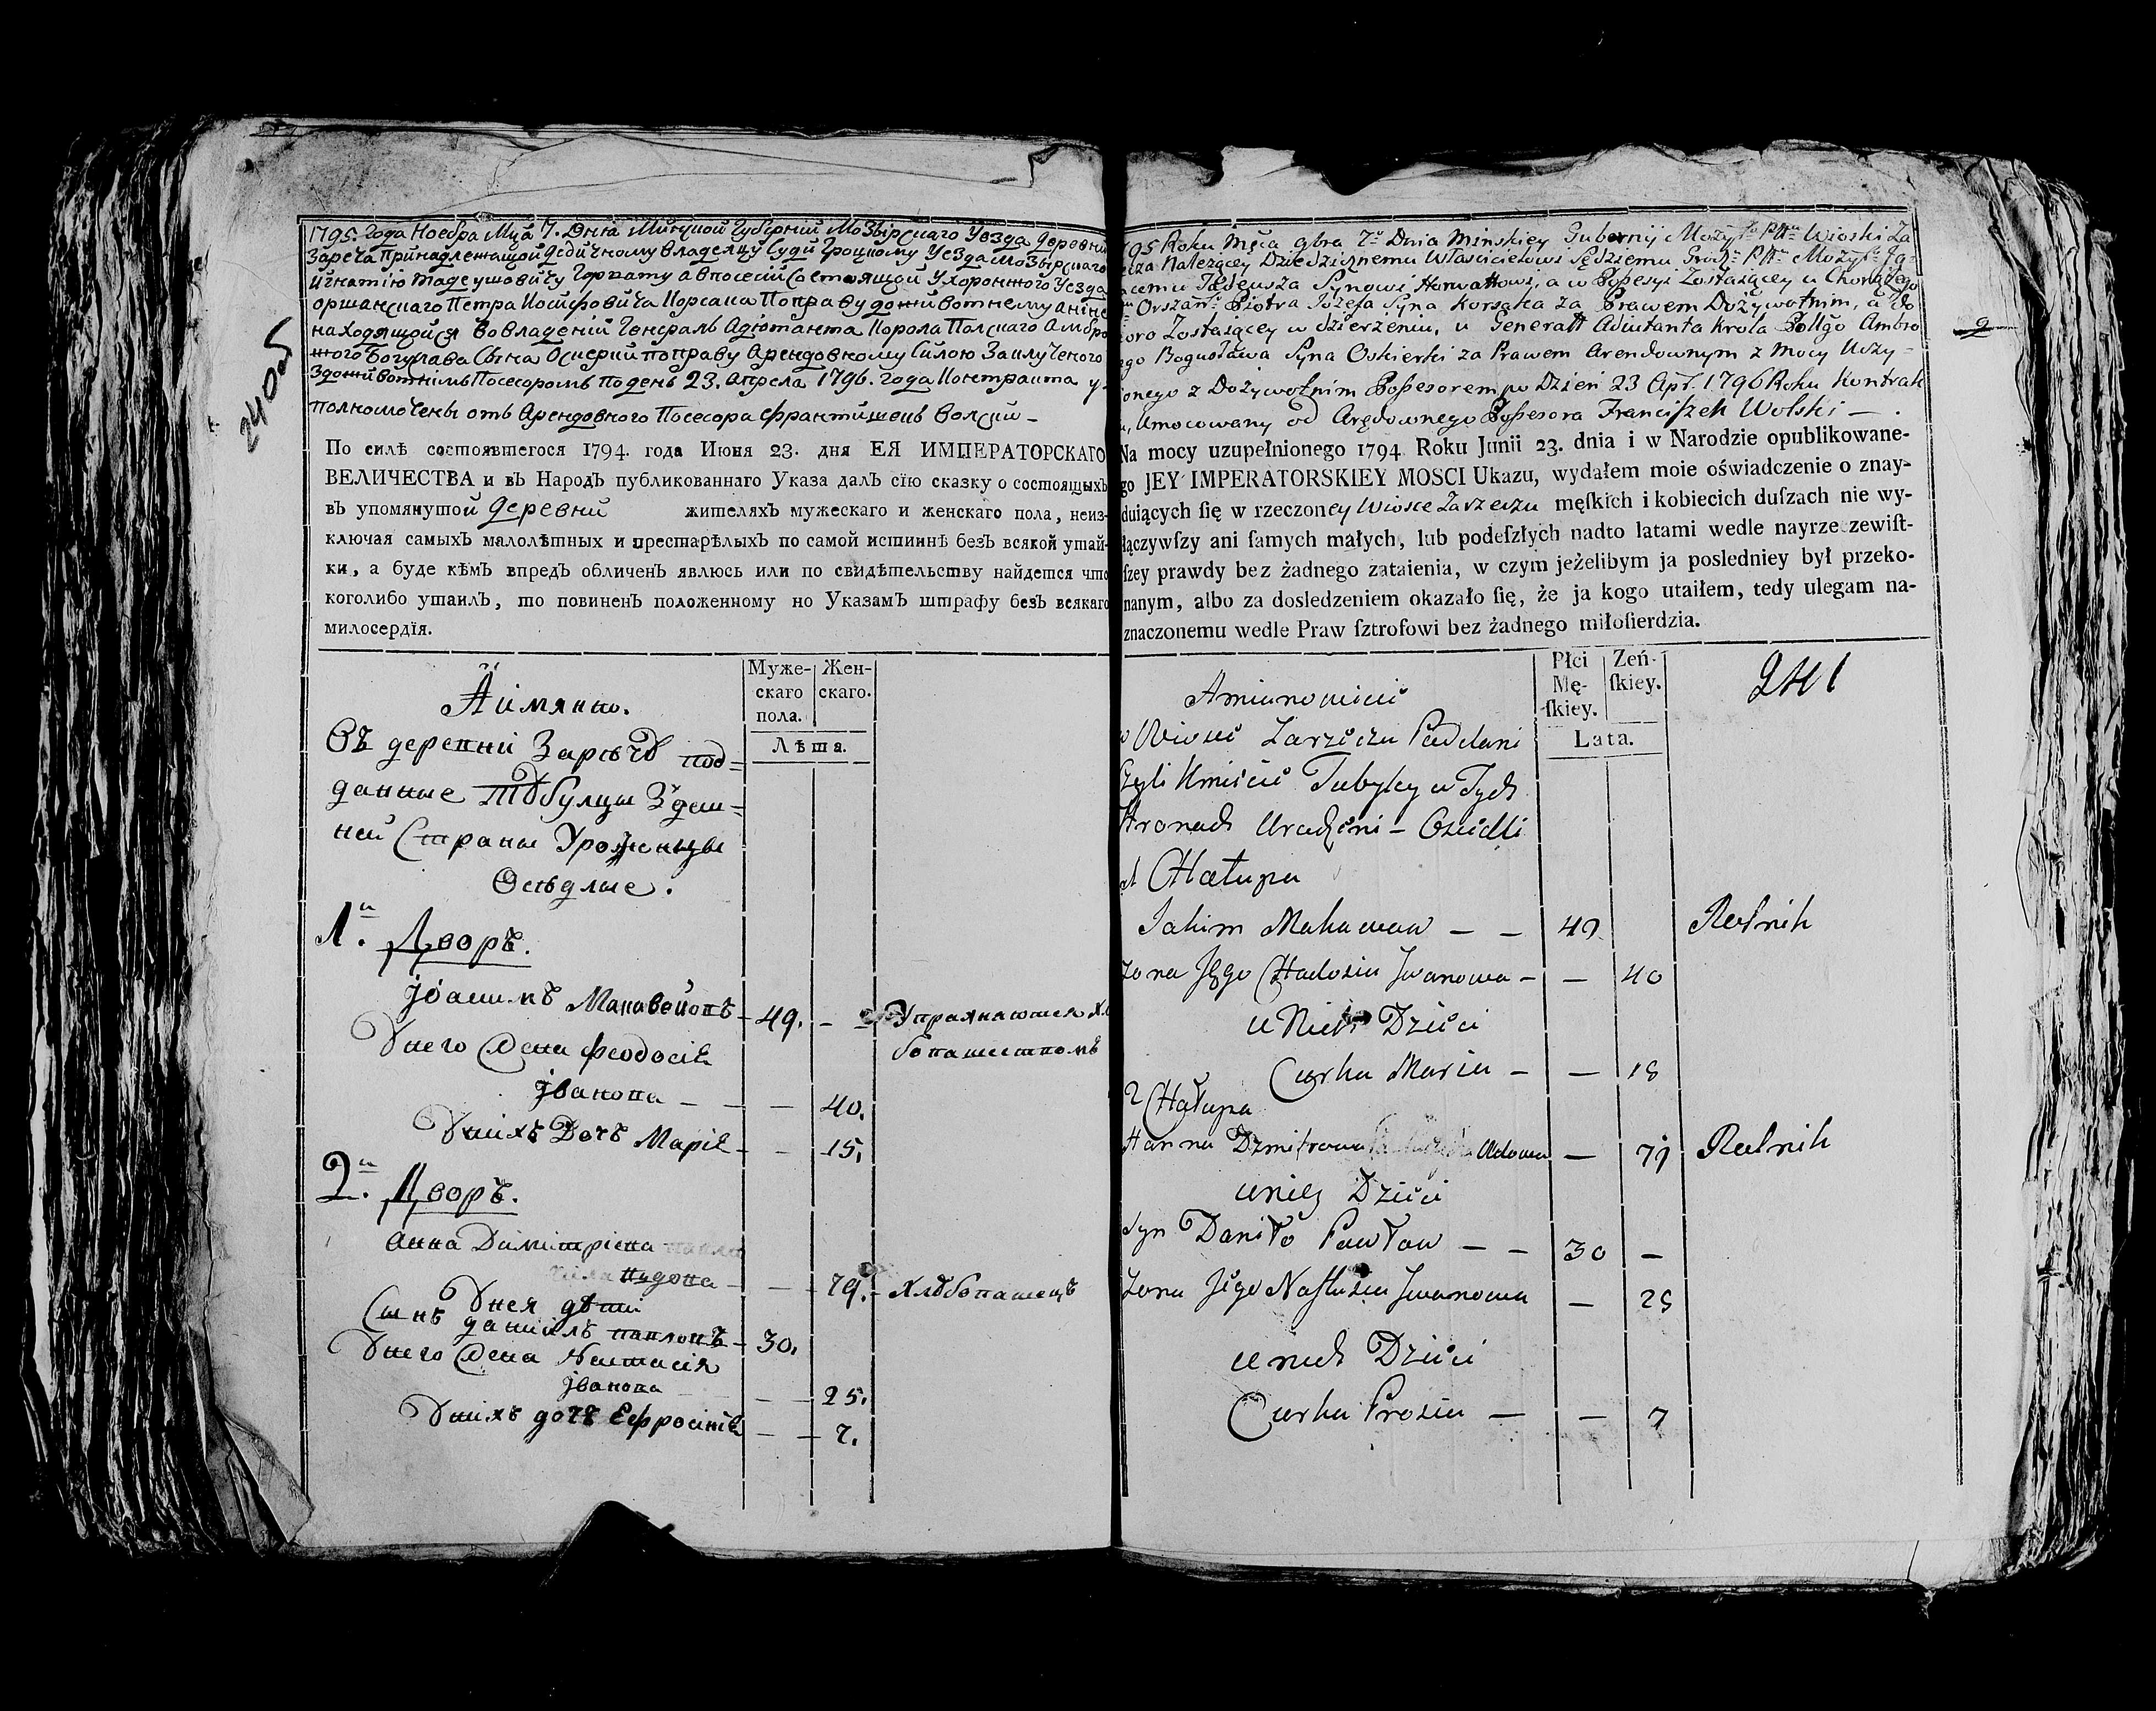 240об
1795. Года Ноебра Мца 7. Дня Минуской Губерний Мозырскаго Уезда деревни
Зареча Принадлежащой Дедичному владелцу Судй Гроцкому Уезда Мозырскаго
Игнатїю Тадеушовичу Горвату а впосесїй Состоящой у Хоронжого Уезда
Оршанскаго Петра Иосифовича Корсака По праву доживотнему а нїне
находящойся во владенїй Генераль Адютанта Короля Полскаго Амбро
жого Богуслава Сына Оскерки по праву Арендовному Силою Заключеного
Здоживотнимъ Посесоромъ по день 23. Апреля 1796. года Контракта у-
полномоченый отъ Арендовного Посесора Франтишекъ Волский –
По силѣ состоявшегося 1794. года Июня 23. дня ЕЯ ИМПЕРАТОРСКАГО
ВЕЛИЧЕСТВА и въ Народъ публикованнаго Указа далъ сїю сказку о состоящыхъ
въ упомянутой деревни жителяхъ мужескаго и женскаго пола, неиз-
ключая самыхъ малолѣтныхъ и престарѣлыхъ по самой истиннѣ безъ всякой утай-
ки, а буде кѣмъ впредъ обличенъ явлюсь или по свидѣтельству найдется что
коголибо утаилъ, то повиненъ положенному по Указамъ штрафу безъ всякаго
милосердїя.
Аимянно.
Муже-
скаго
пола.
Жен-
скаго.
Лѣта.
Въ деревни Зарѣчѣ под=
данные Тубулцы Здеш=
ней Страны Уроженцы
Оседлые.
1й. Дворъ.
Іоакимъ Маковеиовъ – 49. –
Упражнаютея хлѣ
бопашествомъ
Унего Жена Феодосїя
Іванова – – – 40.
Унихъ Дочь Марїя – – 15.
2й. Дворъ.
Анна Димитрїева
– – 79. – Хлѣбопашецъ
Унея дѣти
Сынъ данїилъ павловъ – 30.
Унего Жена Настасїя
Іванова – – 25.
Унихъ дочь Ефросинїя – – 7.
1795 Roku Mca 9bra 7o Dnia Minskiey Gubernij Mozyrgo Pttu Wioski Za
rzecza Należącey Dziedzicznemu Właścicielowi Sędziemu Grodz. Pttu Mozyr. Ig=
nacemu Tadeusza Synowi Horwattowi, a w Possesyi Zostaiącey u Chorążego
Orszan. Piotra Jożefa Syna Korsaka za Prawem Dożywotnim, a do
koro Zostaiącey w dzierżeniu, u Generałł Adiutanta Krola Pollgo Ambro
żego Bogusława Syna Oskierki za Prawem Arendownym z Mocy Uczy=
nionego z Dożywotnim Possesorem po Dzień 23 Apr. 1796 Roku Kontrak
tu, Umocowany od Arędownego Possesora Franciszek Wolski – .
Na mocy uzupełnionego 1794 Roku Junii 23. dnia i w Narodzie opublikowane-
go JEY IMPERATORSKIEY MOSCI Ukazu, wydałem moie oświadczenie o znay-
duiących się w rzeczoney Wiosce Zarzeczu męſkich i kobiecich duſzach nie wy-
łączywſzy ani ſamych małych, lub podeſzłych nadto latami wedle nayrzeczewiſt-
ſzey prawdy bez żadnego zataienia, w czym jeżelibym ja posledniey był przeko-
nanym, albo za dosledzeniem okazało ſię, że ja kogo utaiłem, tedy ulegam na-
znaczonemu wedle Praw ſztrofowi bez żadnego miłoſierdzia.
2
241
Amianowicie
Płci
Mę-
ſkiey.
Zeń-
ſkiey.
Lata.
w Wiosce Zarzeczu Poddani
Czyli Kmiecie Tubylcy w Tych
Stronach Urodzeni – Osiedli
1 Chałupa
Jakim Makawaw – – 49 Rolnik
Zona Jego Chadosia Jwanowa – – 40
u Nich Dzieci
Curka Maria – – 18
2 Chałupa
Hanna Dzmitrowa Udowa – 79 Rolnik
u niey Dzieci
Syn Daniło Pawłow – – 30 –
Zona Jego Nastazia Jwanowa – 25
u nich Dzieci
Curka Prosia – – 7